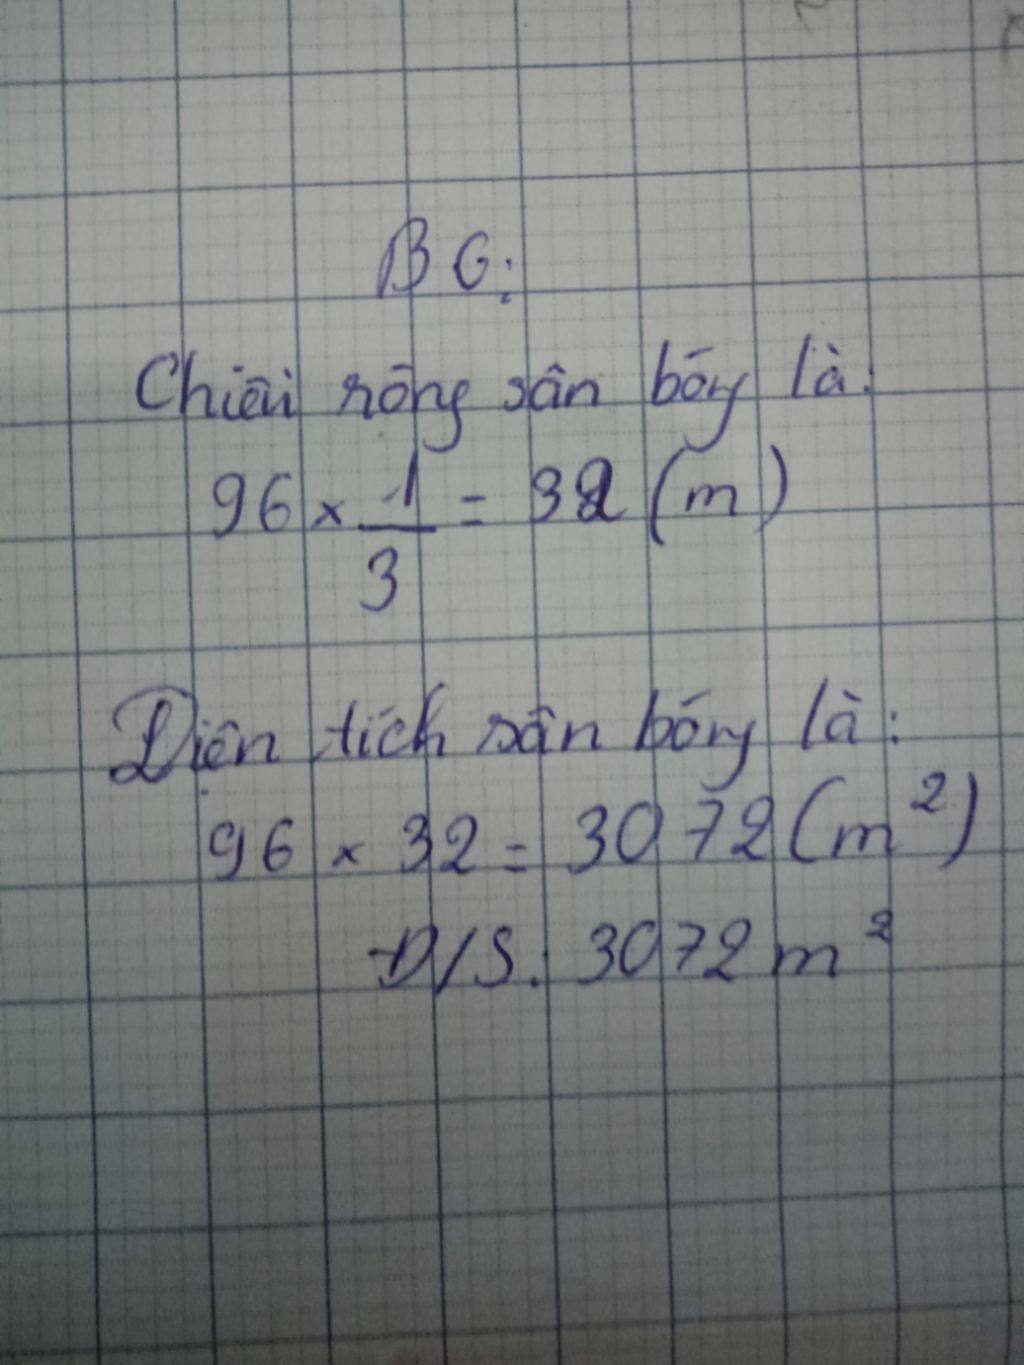 BG:
Chiều rộng sân bóng là:
96 × 1/3 = 32 (m)
Diện tích sân bóng là:
96 × 32 = 3072 (m²)
Đ/S: 3072 m²